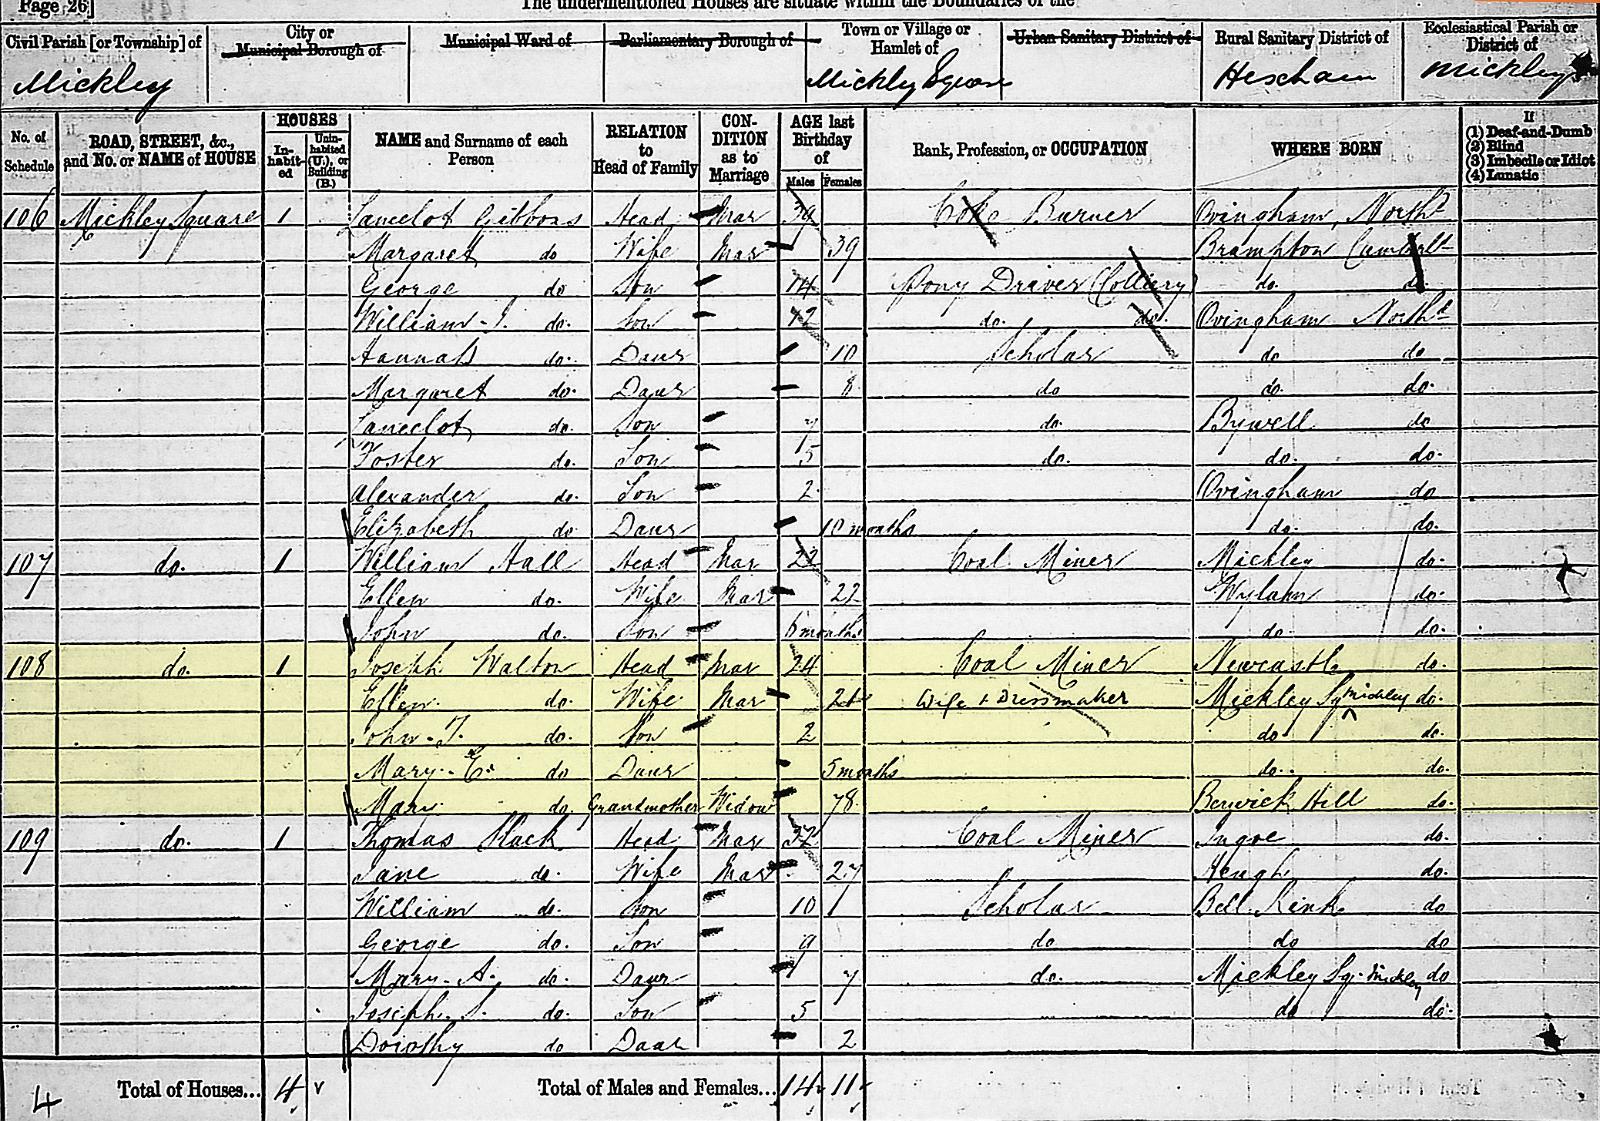 Page 26]
The undermentioned Houses are situate within the Boundaries of the
Civil Parish [or Township] of
City or Municipal Borough of
Municipal Ward of
Parliamentary Borough of
Town or Village or Hamlet of
Urban Sanitary District of
Rural Sanitary District of
Ecclesiastical Parish or District of
Mickley Mickley Square Hexham Mickley
No. of Schedule
ROAD, STREET, &c., and No. or NAME of HOUSE
HOUSES
In-habit-ed
Unin-habited (U.), or Building (B.)
NAME and Surname of each Person
RELATION to Head of Family
CON-DITION as to Marriage
AGE last Birthday of
Males Females
Rank, Profession, or OCCUPATION
WHERE BORN
If
(1) Deaf-and-Dumb
(2) Blind
(3) Imbecile or Idiot
(4) Lunatic
106 Mickley Square 1 Lancelot Gibbons Head Mar 39 Coke Burner Ovingham, Northd
Margaret do Wife Mar 39 Brampton
George do Son 14 Pony Driver (Colliery) do do
William J. do. Son 12 do. do. Ovingham Northd
Hannah do. Daur 10 Scholar do do
Margaret do. Daur 8 do do. do.
Lancelot do. Son 7 do. Bywell do
Foster do. Son 5 do. do. do.
Alexander do. Son 2 Ovingham do
Elizabeth do Daur 10 months do. do.
107 do. 1 William Hall Head Mar 22 Coal Miner Mickley do.
Ellen do. Wife Mar 22 Wylam do.
John do. Son 6 months do. do.
108 do. 1 Joseph Walton Head Mar 24 Coal Miner Newcastle do.
Ellen do. Wife Mar Wife & Dressmaker Mickley Sq Mickley do.
John T. do. Son 2 do do.
Mary E. do Daur 5 months do. do.
Mary do. Grandmother Widow 78 Berwick Hill do.
109 do. 1 Thomas Slack Head Mar 32 Coal Miner Ingoe do.
Jane do. Wife Mar 27 Heugh do.
William do. Son 10 Scholar Bell do
George do. Son 9 do do do
Mary A. do. Daur 7 do. Mickley Sq. Mickley do
Joseph S. do. Son 5 do do.
Dorothy do Daur 2
4 Total of Houses... 4 Total of Males and Females... 14 11